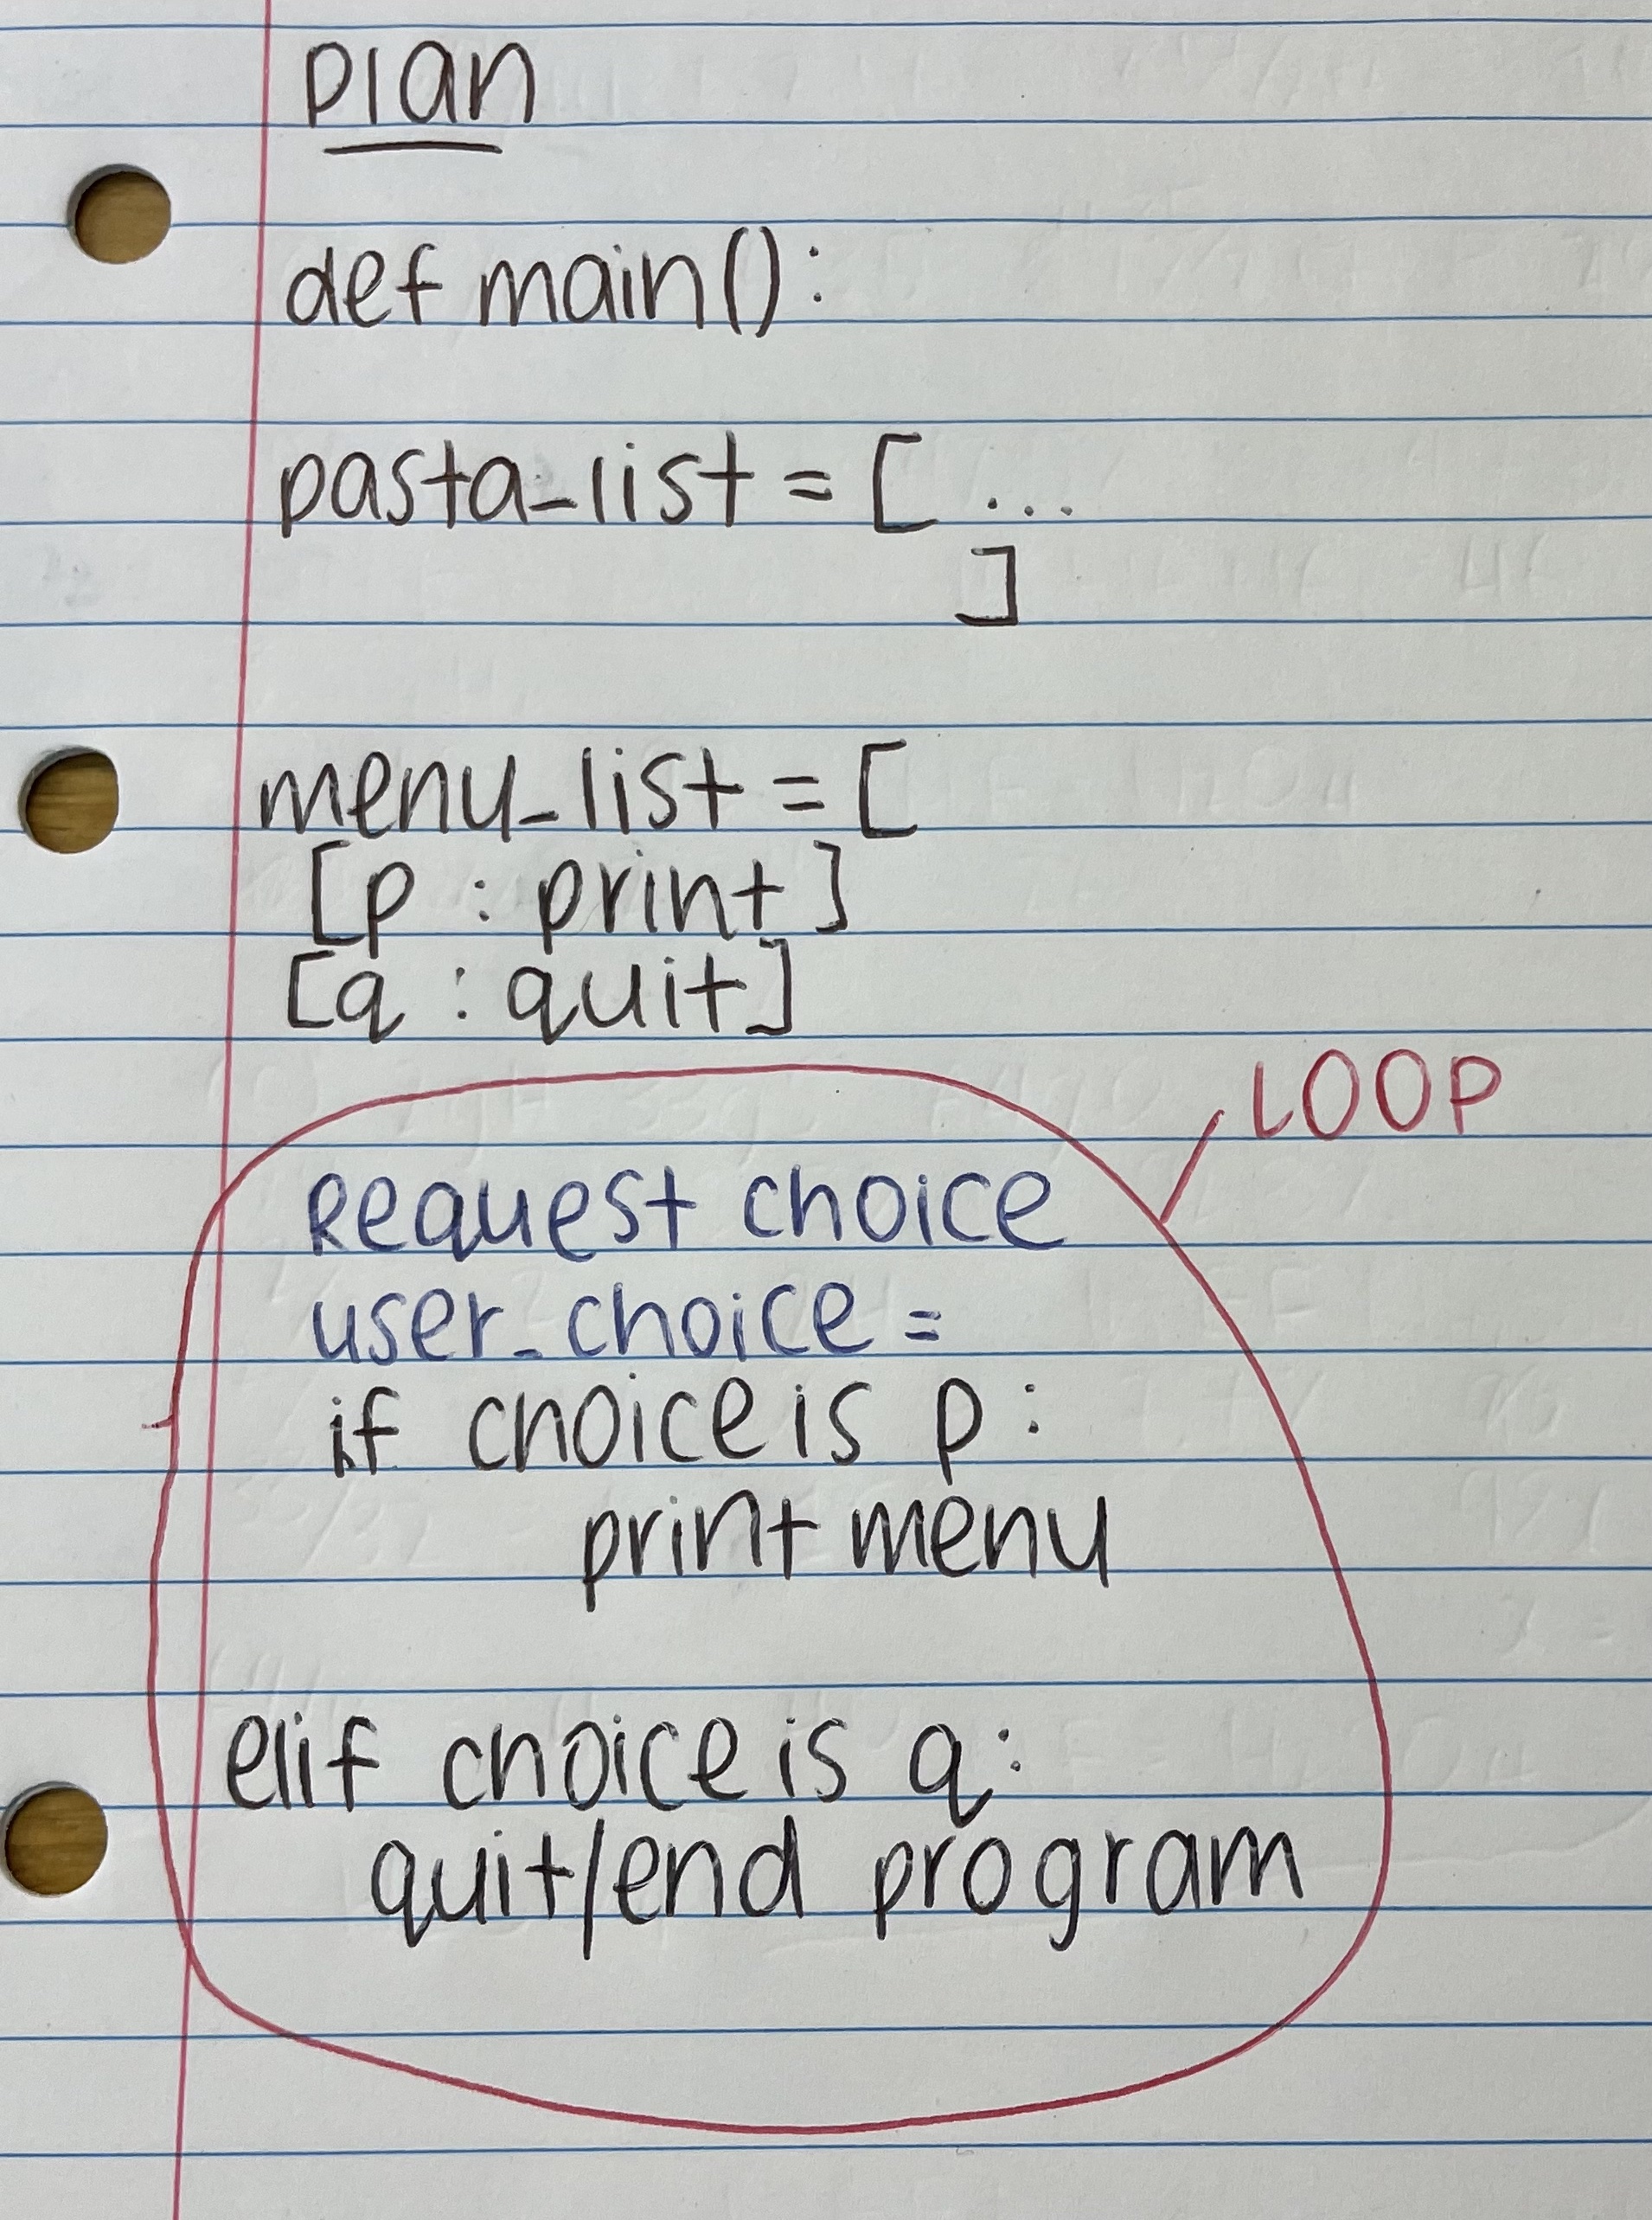 plan
def main():
pasta_list = [ ...
]
menu_list = [
[p : print]
[q : quit]
LOOP
Request choice
user_choice =
if choice is p :
print menu
elif choice is q:
quit/end program